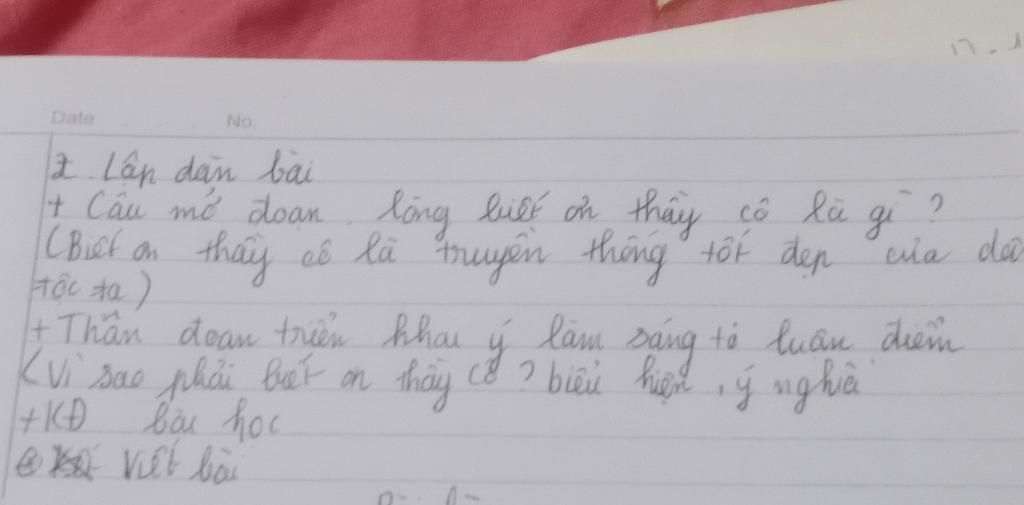 17 - 1
Date No.
2. Lập dàn bài
+ Câu mở đoạn. lòng biết ơn thầy cô là gì?
(Biết ơn thầy cô là truyền thống tốt đẹp của dân
tộc ta)
+ Thân đoạn triển khai ý làm sáng tỏ luận điểm
(Vì sao phải biết ơn thầy cô? biểu hiện, ý nghĩa
+ KĐ bài học
Viết bài